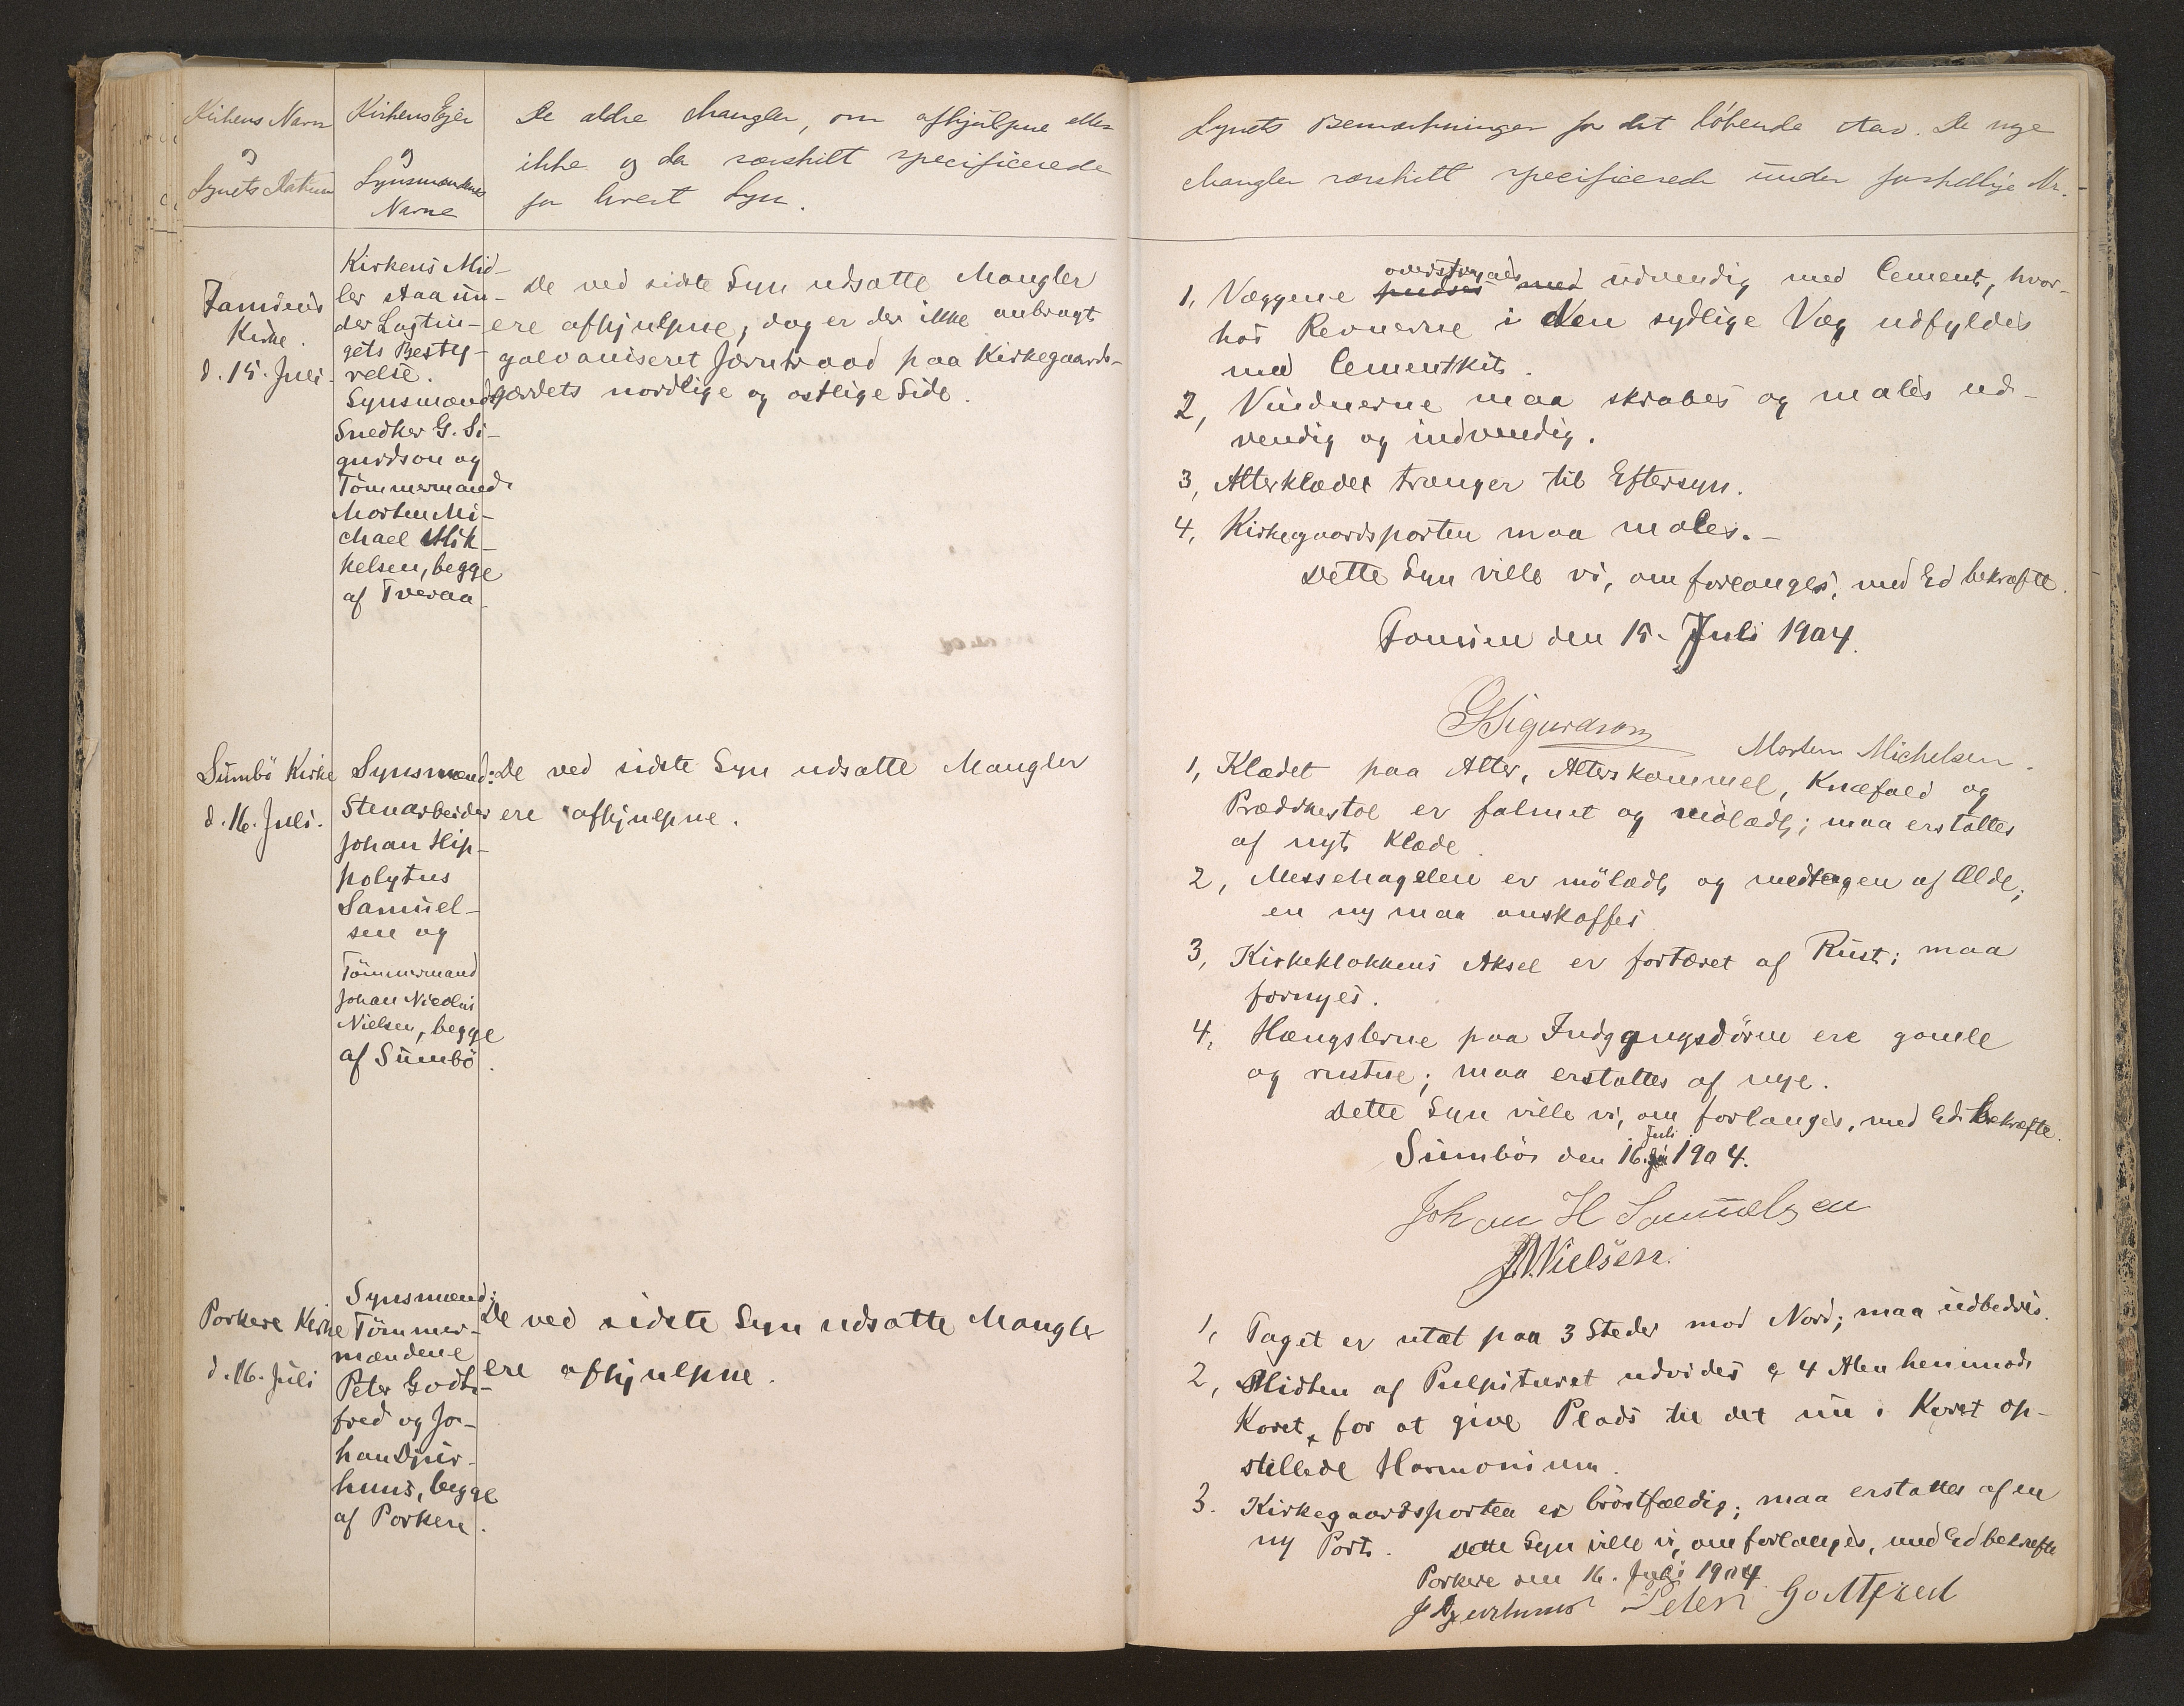 Kirkens Navn
og
Synets Datum
Kirkens Ejer
og
Synsmændenes
Navne
De ældre Mangler, om afhjulpne eller
ikke og da særskilt specificerede
for hvert Syn.
Famiens
Kirke.
d. 15. Juli.
Kirkens Mid-
ler staa un-
der Lagtin-
gets Besty-
relse.
Synsmænd:
Snedker G. Si-
gurdson og
Tömmermand
Morten Mi-
chael Mik-
kelsen, begge
af Tveraa
De ved sidste Syn udsatte Mangler
ere afhjulpne, dog er der ikke anbragt
galvaniseret Jerntraad paa Kirkegaards-
gærdets nordlige og ostlige Side.
Sumbö Kirke
d. 16. Juli.
Synsmænd:
Stenarbeider
Johan Hip-
polytus
Samuel-
sen og
Tömmermand
Johan Nicolai
Nielsen, begge
af Sumbö.
De ved sidste Syn udsatte Mangler
ere afhjulpne.
Porkere Kirke
d. 16. Juli
Synsmænd:
Tömmer-
mændene
Peter Godt-
fred og Jo-
han Djur-
huus, begge
af Porkere.
De ved sidste Syn udsatte Mangler
ere afhjulpne.
Synets Bemærkninger for det löbende Aar. De nye
Mangler særskilt specificerede under forskellige Nr.
1, Væggene pudses med overstryges udvendig med Cement, hvor-
hos Revnerne i den sydlige Væg udfyldes
med Cementkit.
2, Vinduerne maa skrabes og males ud-
vendig og indvendig.
3, Alterklædet trænger til Eftersyn.
4, Kirkegaardsporten maa males.-
Dette Syn ville vi, om forlanges, med Ed bekræfte.
Famien den 15. Juli 1904.
G Sigurdson
Morten Michelsen.
1, Klædet paa Alter, Alterskammel, Knæfald og
Prædikestol er falmet og mölædt; maa erstattes
af nyt Klæde.
2, Messehagelen er mölædt og medtagen af Ælde;
en ny maa anskaffes
3, Kirkeklokkens Aksel er fortæret af Rust; maa
fornyes.
4, Hængslerne paa Indgangsdören ere gamle
og rustne; maa erstattes af nye.
Dette Syn ville vi, om forlanges, med Ed bekræfte.
Sumbö den 16. Juli 1904.
Johan H Samuelsen
J.N. Nielsen.
1, Taget er utæt paa 3 Steder mod Nord; maa udbedres.
2, Midten af Pulpituret udvides c 4 Alen henimod
Koret, for at give Plads til det nu i Koret op-
stillede Harmonium.
3. Kirkegaardsporten er bröstfældig; maa erstattes af en
ny Port. Dette Syn ville vi, om forlanges, med Ed bekræfte
Porkere den 16. Juli 1904
J Djurhuus Peter Godtfred